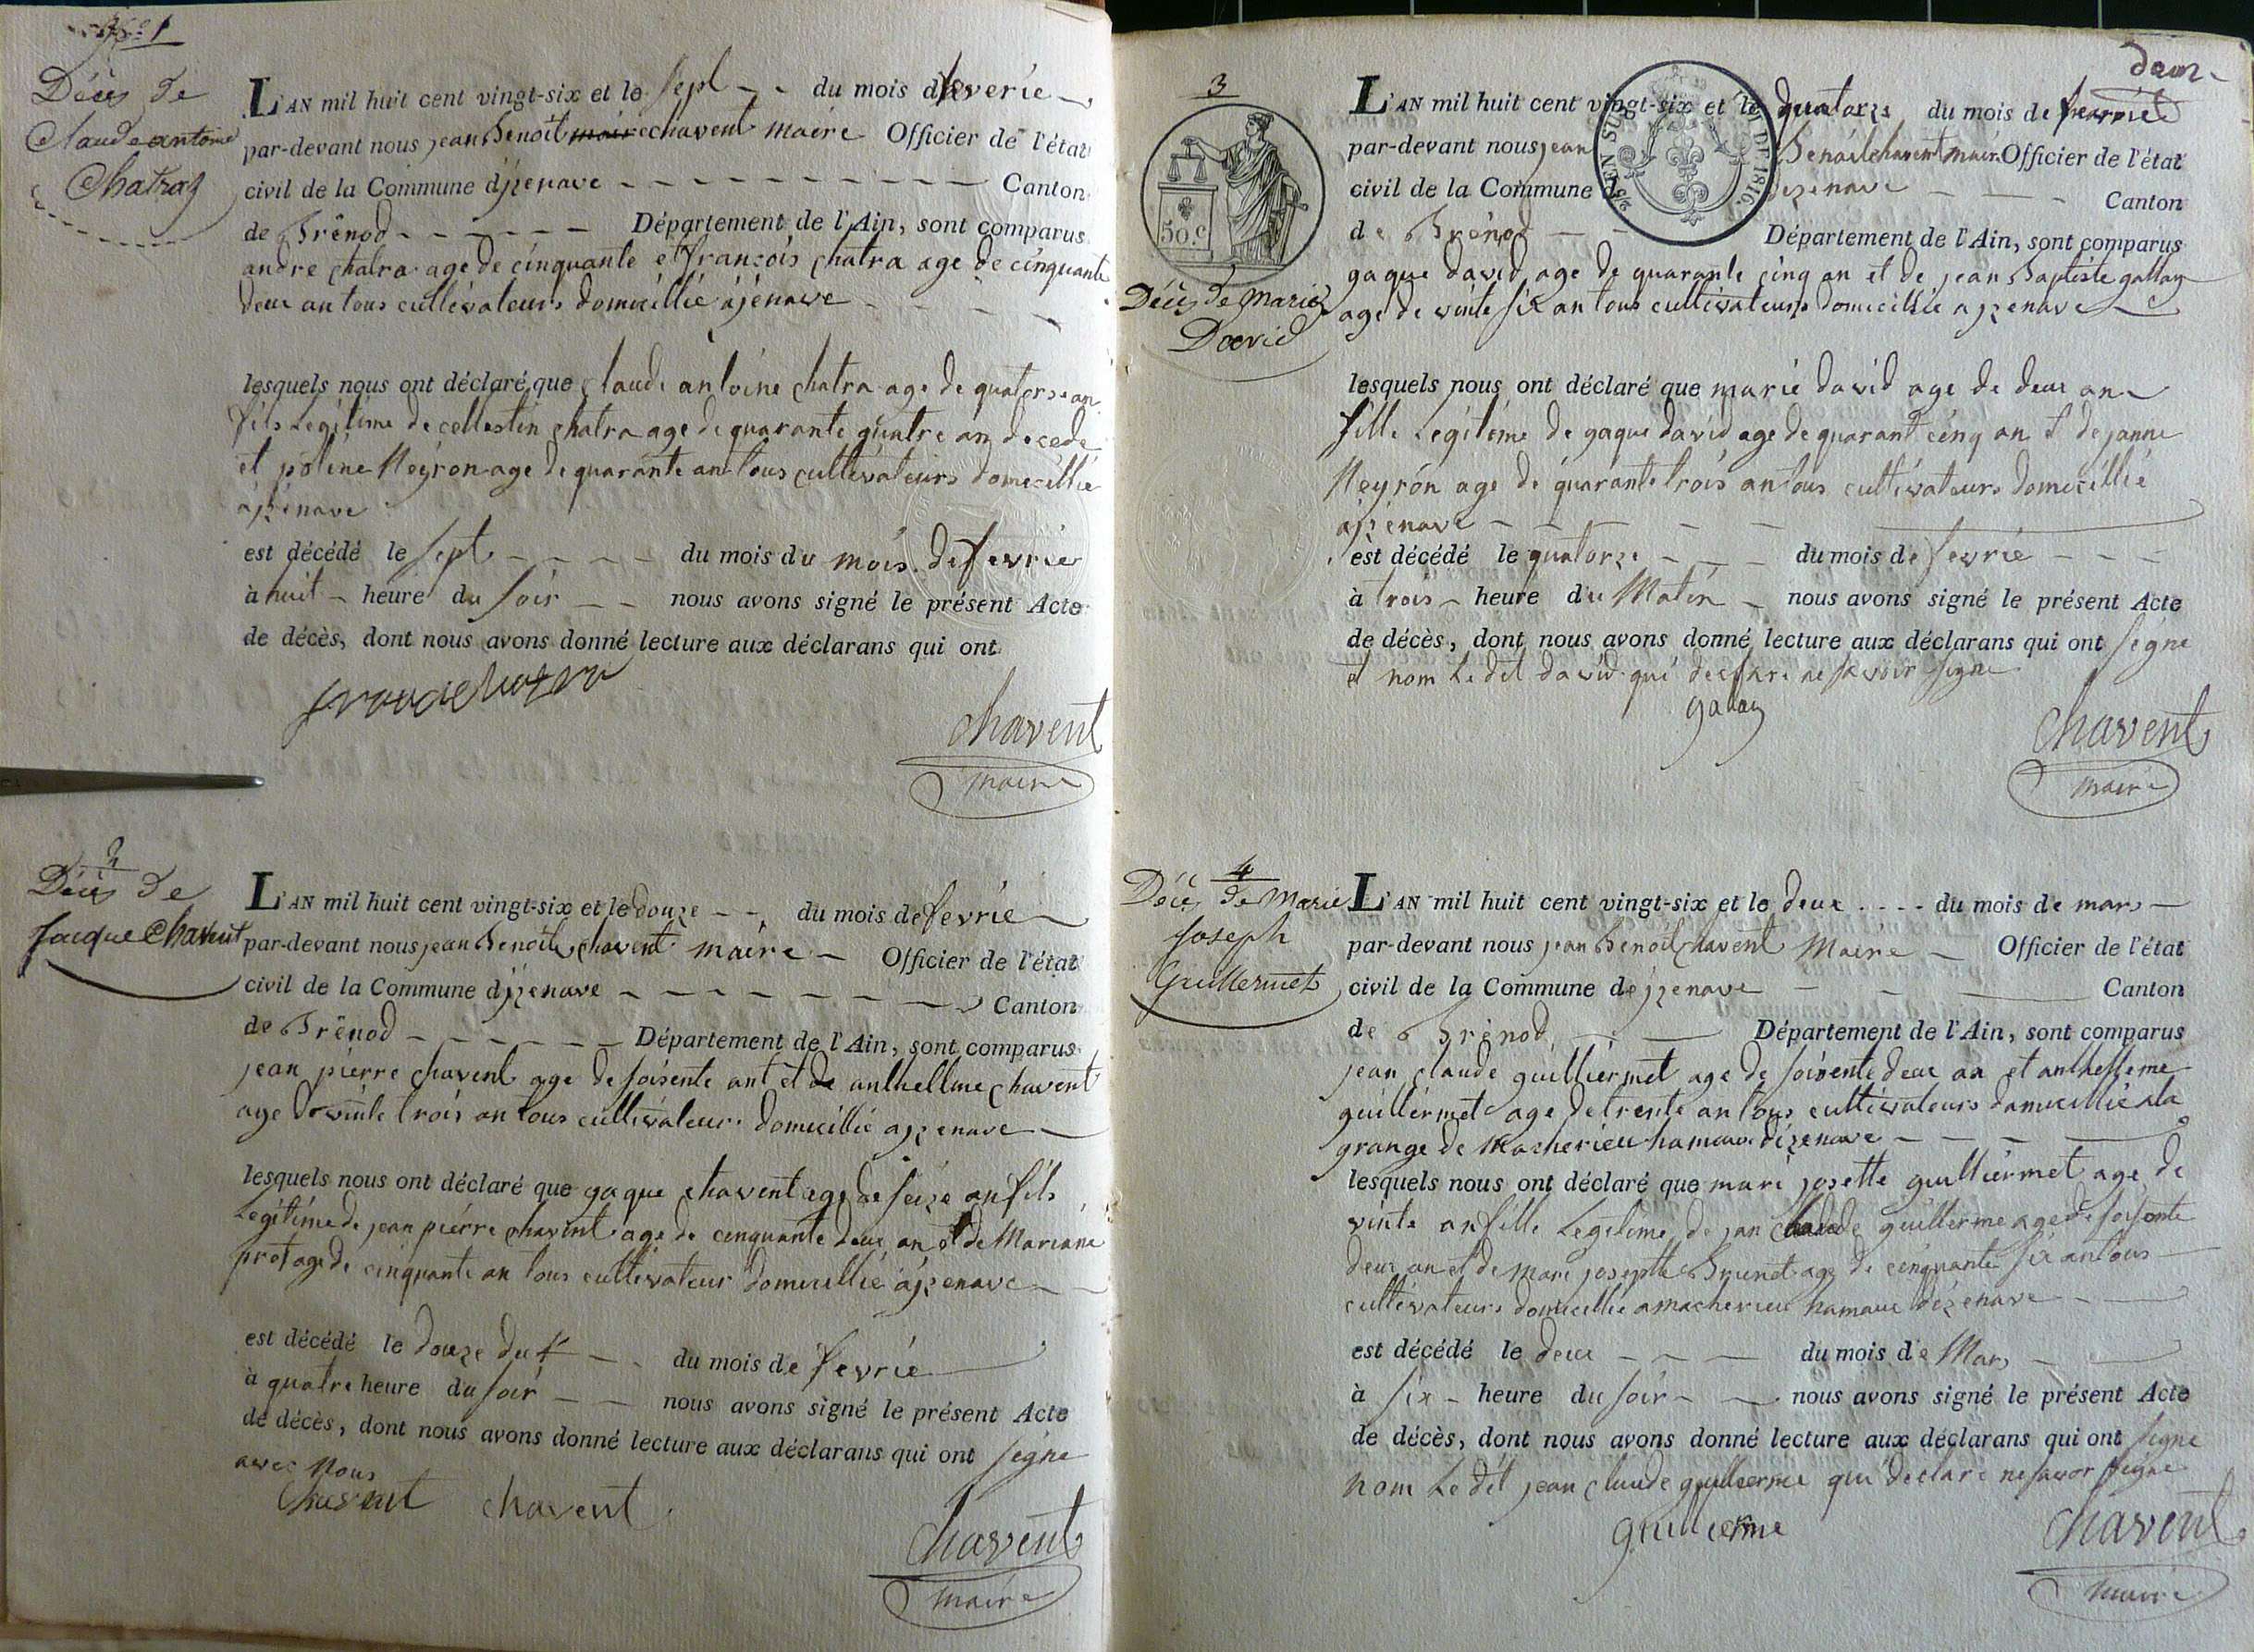 N.° 1
Décès de
Claude antoine
Chatraz
L'AN mil huit cent vingt-six et le sept du mois de feverie
par-devant nous jean Benoit maire chavent maire Officier de l'état
civil de la Commune d'jzenave Canton
de Brénod Département de l'Ain, sont comparus
andre chatra age de cinquante et françois chatra age de cinquante
deux an tous cultivateurs domicillié a jénave
lesquels nous ont déclaré que claude antoine chatra age de quatorse an
fils Legitime de cellestin chatra age de quarante quatre an decede
et poline Neyron age de quarante an tous cultivateurs domicillié
a jzenave
est décédé le sept du mois du mois de fevrie
à huit heure du soir nous avons signé le présent Acte
de décès, dont nous avons donné lecture aux déclarans qui ont
chavent
maire
2
Décès de
Jacque Chavent
L'AN mil huit cent vingt-six et le douze du mois de fevrie
par-devant nous jean Benoit chavent maire Officier de l'état
civil de la Commune d'jzenave Canton
de Brénod Département de l'Ain, sont comparus
jean pierre chavent age de soisente ant et de anthellme chavent
age de vinte trois an tous cultivateur domicillié a jzenave
lesquels nous ont déclaré que gaque chavent age de seize an fils
Legitime de jean pierre chavent age de cinquante deux an et de Mariane
prost age de cinquante an tous cultivateur domicillié a jzenave
est décédé le douze du du mois de fevrie
à quatre heure du soir nous avons signé le présent Acte
de décès, dont nous avons donné lecture aux déclarans qui ont signe
avec nous
Chavent chavent
chavent
maire
deux
3
50.c
DE 1816
Décès de Marie
David
L'AN mil huit cent vingt-six et le quatorze du mois de fevrie
par-devant nous jean Benoit chavent maire Officier de l'état
civil de la Commune de jzenave Canton
de Brénod Département de l'Ain, sont comparus
gaque david age de quarante cinq an et de jean Baptiste gallay
age de vinte six an tous cultivateurs domicillié a jzenave
lesquels nous ont déclaré que marie david age de deux an
fille Legitime de gaque david age de quarant cinq an et de janne
Neyron age de quarante trois an tous cultivateurs domicillié
a jzenave
est décédé le quatorze du mois de fevrie
à trois heure du Matin nous avons signé le présent Acte
de décès, dont nous avons donné lecture aux déclarans qui ont signe
et nom Le dit david qui declare ne savoir signe
gallay
chavent
maire
4
Décès de Marie
Joseph
Guillermet
L'AN mil huit cent vingt-six et le deux du mois de mars
par-devant nous jean Benoit chavent Maire Officier de l'état
civil de la Commune de jzenave Canton
de Brénod Département de l'Ain, sont comparus
jean claude guilliermet age de soisente deux an et anthelleme
guillermet age de trente an tous cultivateurs domicillié a la
grange de Macherieu hamaux d'izenave
lesquels nous ont déclaré que mari josette guilliermet age de
vinte an fille Legitime de jan claude guillerme age de soisente
deux an et de Mari josephte Brunet age de cinquante six an tous
cultivateurs domicillié a macherieu hamaux dizenave
est décédé le deux du mois de Mars
à six heure du soir nous avons signé le présent Acte
de décès, dont nous avons donné lecture aux déclarans qui ont signe
nom Le dit jean claude guillerme qui declare ne savor signe
guillerme
chavent
maire